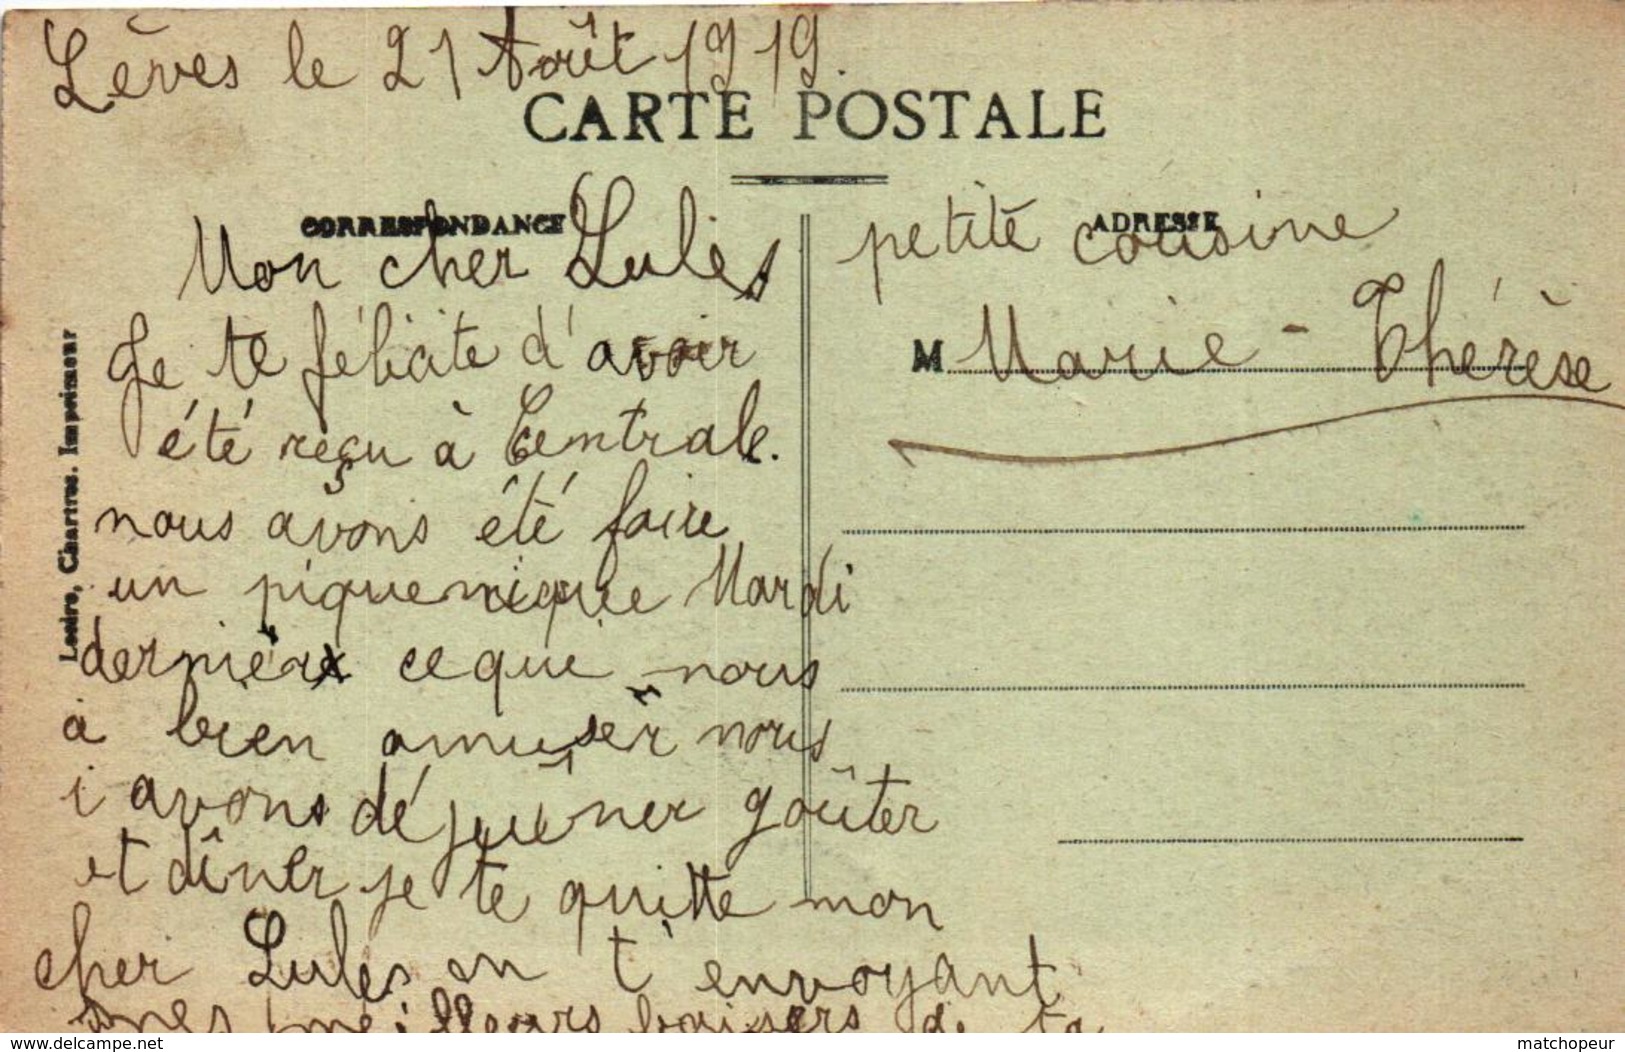 Lèves le 21 Août 1919.
CARTE POSTALE
CORRESPONDANCE
Mon cher Lulès
Je te félicite d'avoir
été reçu à Centrale.
nous avons été faire
un piqueniquie Mardi
dernière ce qui nous
à bien amuser nous
i avons déjeuîner goûter
et dîner je te quitte mon
cher Lulès en t'envoyant
mes meilleurs baisers de ta
petite cousine
ADRESSE
M Marie-Thérèse
Chartres. Imprimeur
www.delcampe.net
matchopeur